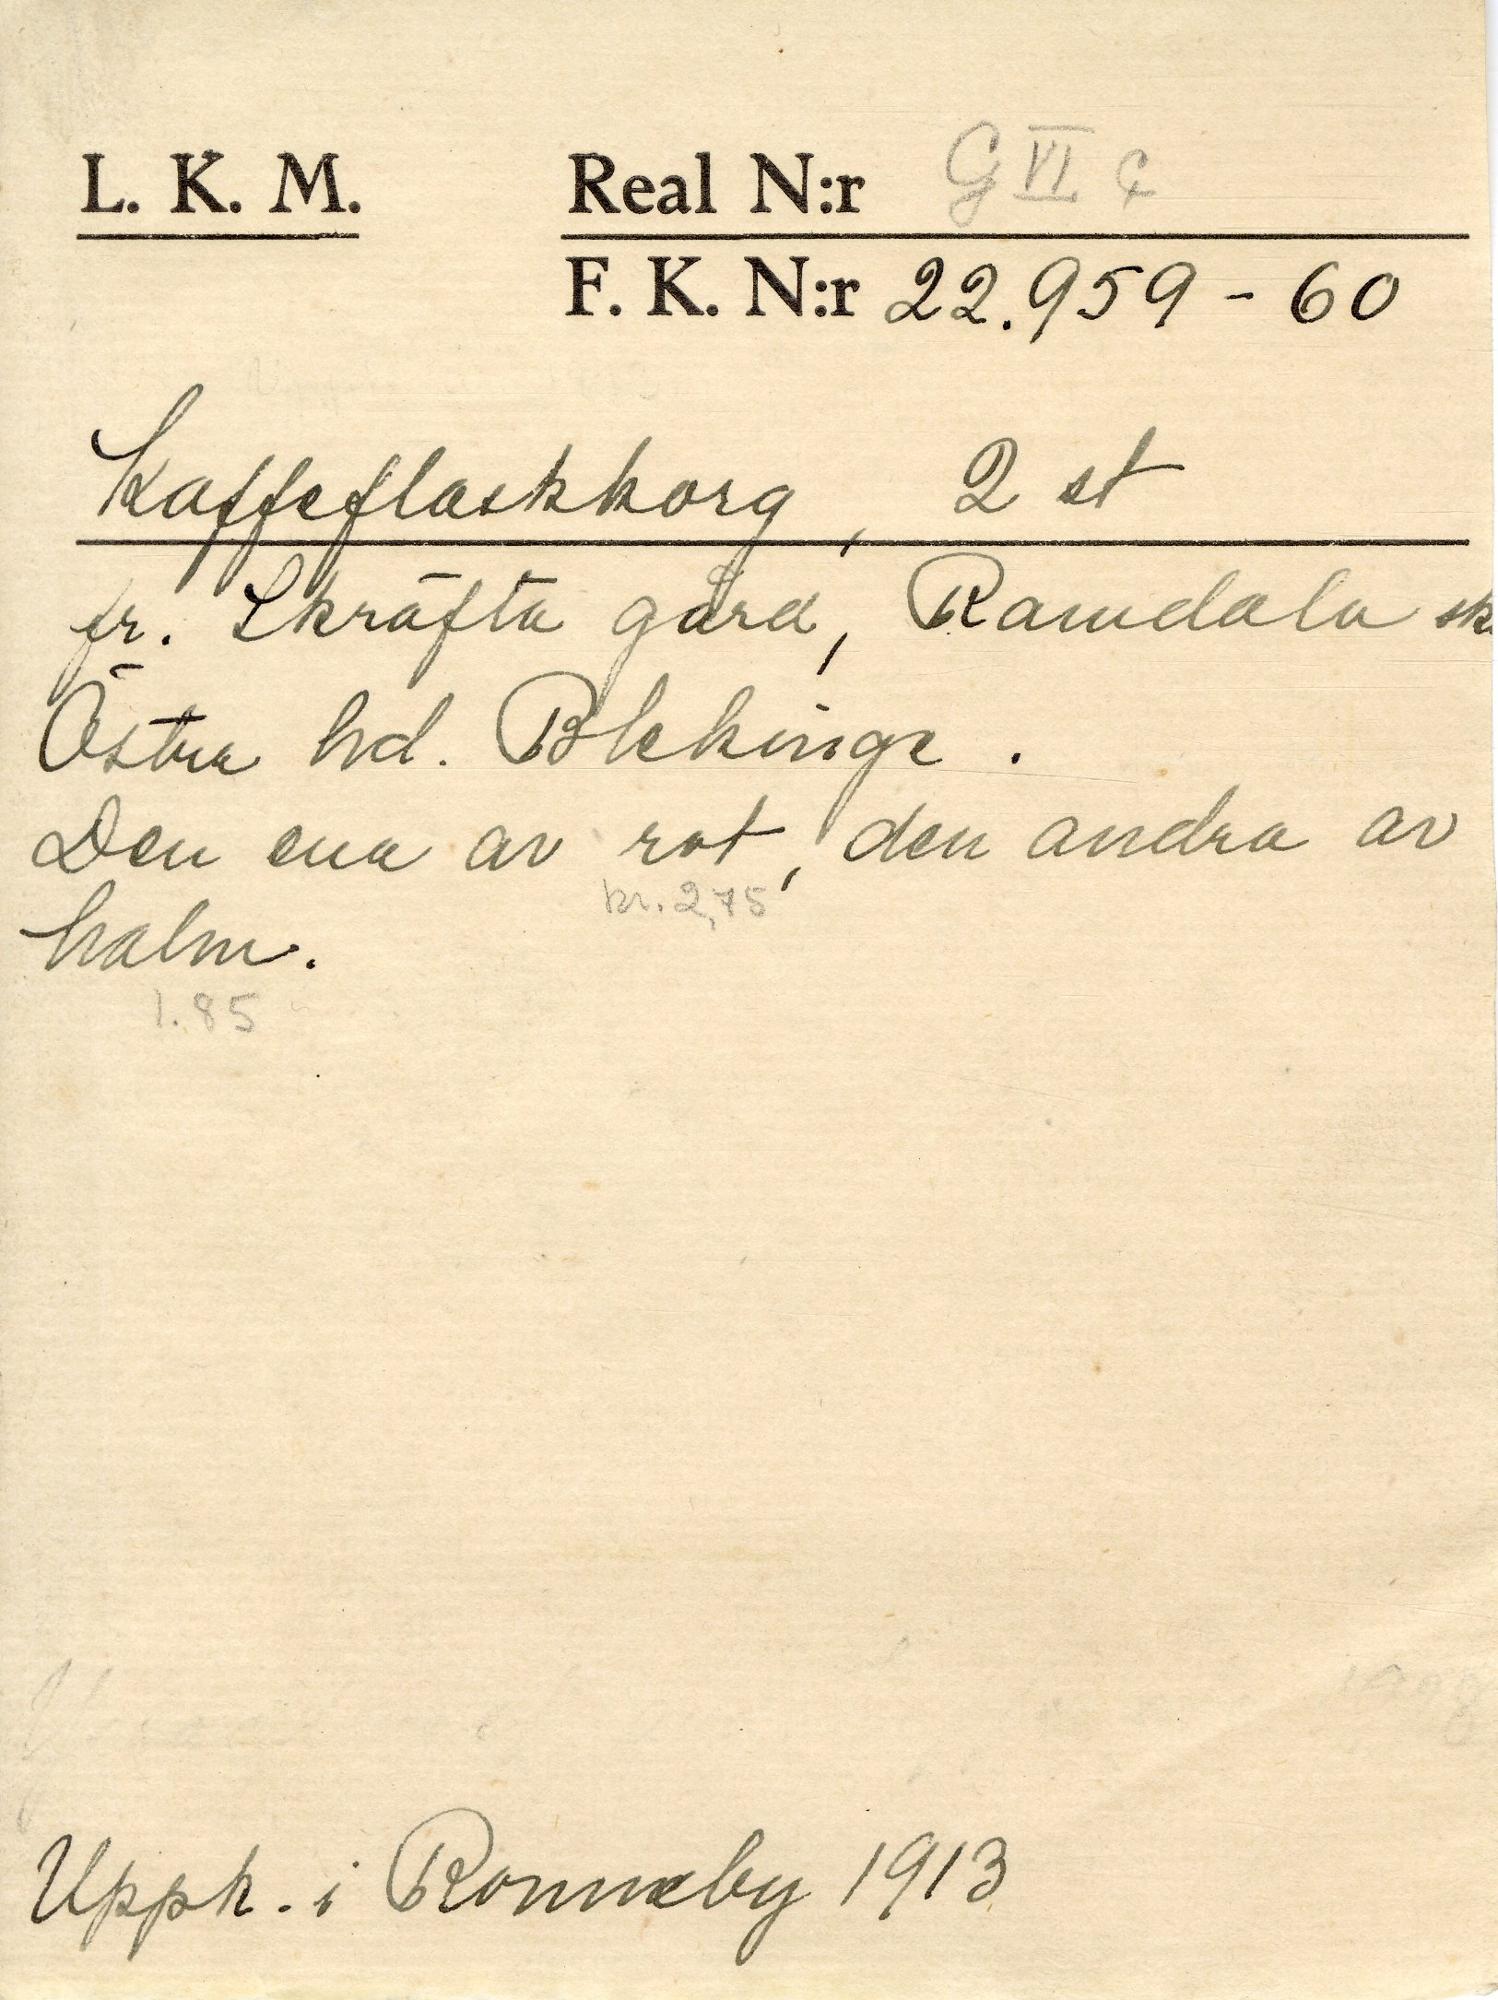 L. K. M. Real N:r G VI c
F. K. N:r 22.959 - 60
Kaffeflaskkorg, 2 st
fr. Skräfta gård, Ramdala sk.
Östra hd. Blekinge.
Den ena av rot, den andra av
kr. 2,75
halm.
1.85
Uppk. i Ronneby 1913